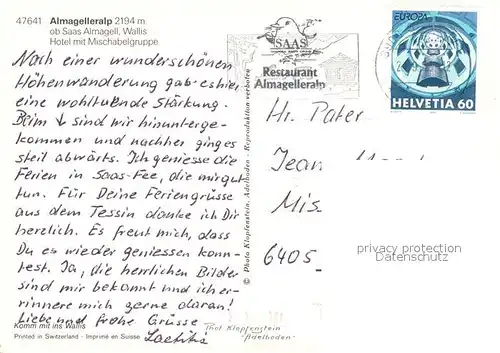 47641 Almagelleralp 2194 m.
ob Saas Almagell, Wallis
Hotel mit Mischabelgruppe
Nach einer wunderschönen
Höhenwanderung gab es hier
eine wohltuende Stärkung.
Beim ↓ sind wir hinunterge-
kommen und nachher ging es
steil abwärts. Ich geniesse die
Ferien in Saas-Fee, die mir gut
tun. Für Deine Feriengrüsse
aus dem Tessin danke ich Dir
herzlich. Es freut mich, dass
Du es wieder geniessen konn-
test. Ja, die herrlichen Bilder
sind mir bekannt und ich er-
innere mich gerne daran!
Liebe und frohe Grüsse
Laetitia
Komm mit ins Wallis
Printed in Switzerland - Imprimé en Suisse
© Photo Klopfenstein, Adelboden - Reproduktion verboten
SAAS
Restaurant
Almagelleralp
EUROPA
HELVETIA 60
Hr. Pater
Jean
Mis
6405
privacy protection
Datenschutz
Phot Klopfenstein
Adelboden